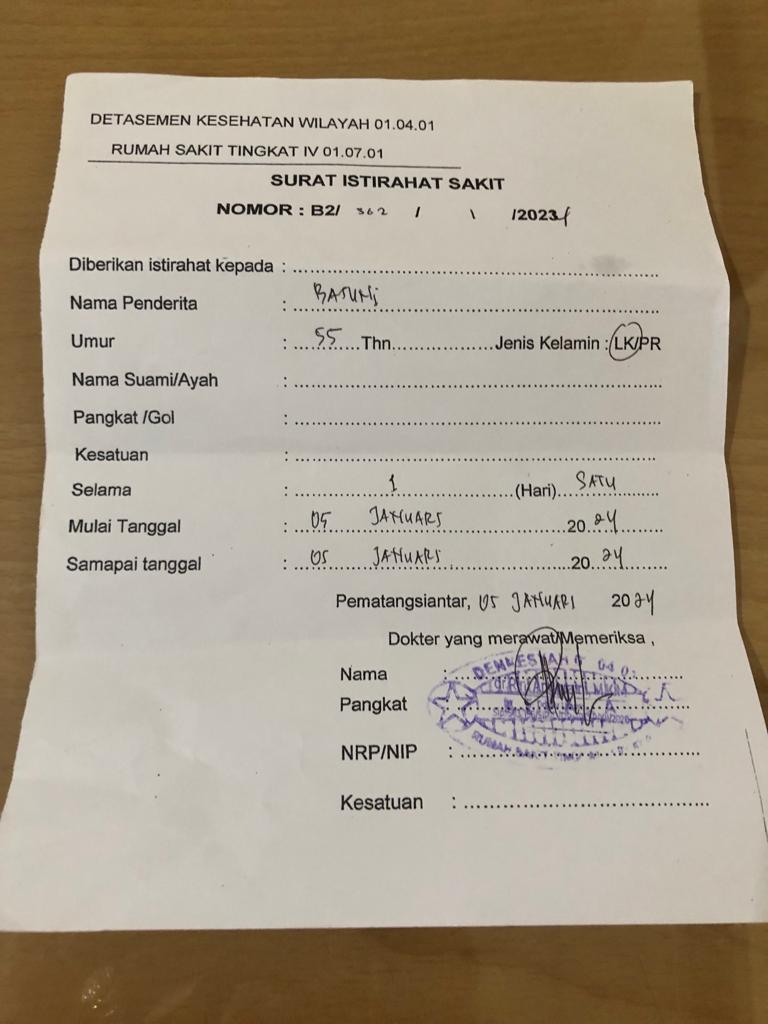 DETASEMEN KESEHATAN WILAYAH 01.04.01
RUMAH SAKIT TINGKAT IV 01.07.01
SURAT ISTIRAHAT SAKIT
NOMOR : B2/ 362 / \ /2024
Diberikan istirahat kepada : ..........
Nama Penderita : BASUNI
Umur : 55 Thn Jenis Kelamin : LK/PR
Nama Suami/Ayah : ..........
Pangkat /Gol : ..........
Kesatuan : ..........
Selama : 1 (Hari) SATU
Mulai Tanggal : 05 JANUARI 2024
Samapai tanggal : 05 JANUARI 2024
Pematangsiantar, 05 JANUARI 2024
Dokter yang merawat/Memeriksa ,
Nama :
Pangkat :
NRP/NIP : ..........
Kesatuan : ..........